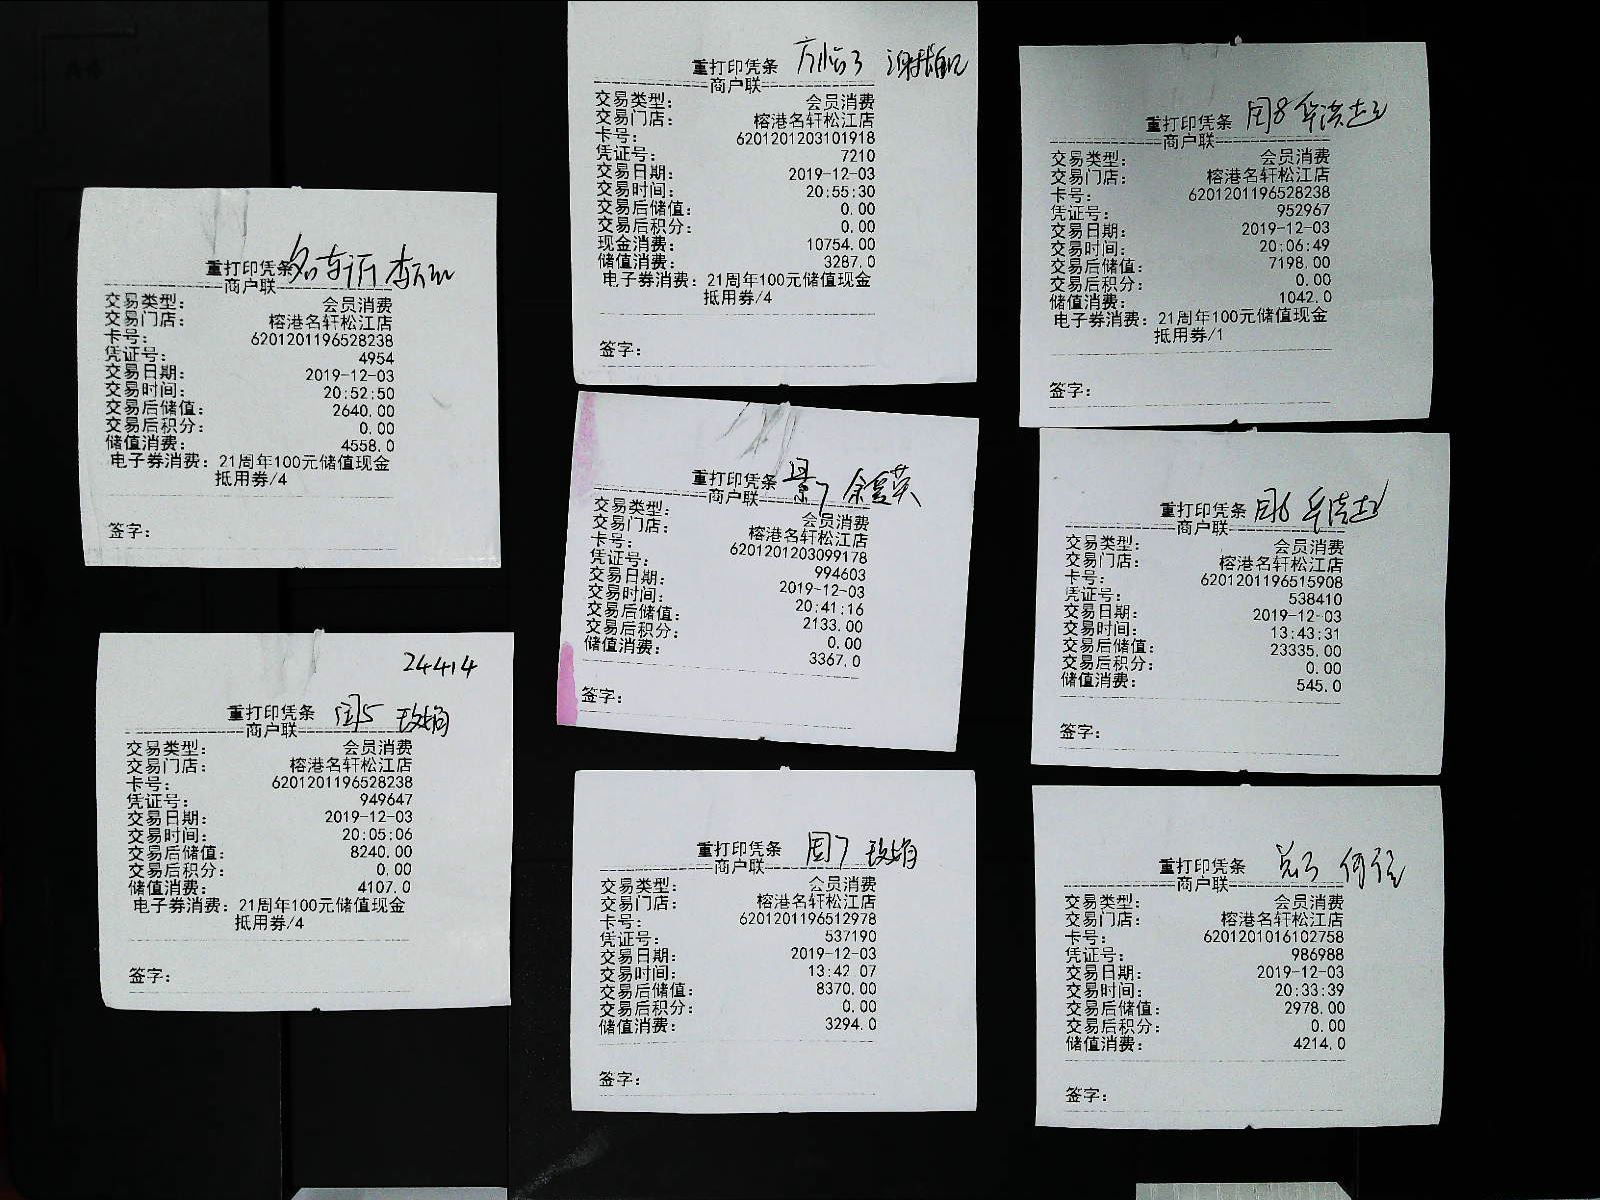 重打印凭条
商户联
交易类型： 会员消费
交易门店： 榕港名轩松江店
卡号： 6201201196528238
凭证号： 4954
交易日期： 2019-12-03
交易时间： 20:52:50
交易后储值： 2640.00
交易后积分： 0.00
储值消费： 4558.0
电子券消费：21周年100元储值现金
抵用券/4
签字：
24414
重打印凭条 周5
商户联
交易类型： 会员消费
交易门店： 榕港名轩松江店
卡号： 6201201196528238
凭证号： 949647
交易日期： 2019-12-03
交易时间： 20:05:06
交易后储值： 8240.00
交易后积分： 0.00
储值消费： 4107.0
电子券消费：21周年100元储值现金
抵用券/4
签字：
重打印凭条
商户联
交易类型： 会员消费
交易门店： 榕港名轩松江店
卡号： 6201201203101918
凭证号： 7210
交易日期： 2019-12-03
交易时间： 20:55:30
交易后储值： 0.00
交易后积分： 0.00
现金消费： 10754.00
储值消费： 3287.0
电子券消费：21周年100元储值现金
抵用券/4
签字：
重打印凭条
商户联
交易类型： 会员消费
交易门店： 榕港名轩松江店
卡号： 6201201203099178
凭证号： 994603
交易日期： 2019-12-03
交易时间： 20:41:16
交易后储值： 2133.00
交易后积分： 0.00
储值消费： 3367.0
签字：
重打印凭条 周7
商户联
交易类型： 会员消费
交易门店： 榕港名轩松江店
卡号： 6201201196512978
凭证号： 537190
交易日期： 2019-12-03
交易时间： 13:42 07
交易后储值： 8370.00
交易后积分： 0.00
储值消费： 3294.0
签字：
重打印凭条 周8
商户联
交易类型： 会员消费
交易门店： 榕港名轩松江店
卡号： 6201201196528238
凭证号： 952967
交易日期： 2019-12-03
交易时间： 20:06:49
交易后储值： 7198.00
交易后积分： 0.00
储值消费： 1042.0
电子券消费：21周年100元储值现金
抵用券/1
签字：
重打印凭条 周6
商户联
交易类型： 会员消费
交易门店： 榕港名轩松江店
卡号： 6201201196515908
凭证号： 538410
交易日期： 2019-12-03
交易时间： 13:43:31
交易后储值： 23335.00
交易后积分： 0.00
储值消费： 545.0
签字：
重打印凭条
商户联
交易类型： 会员消费
交易门店： 榕港名轩松江店
卡号： 6201201016102758
凭证号： 986988
交易日期： 2019-12-03
交易时间： 20:33:39
交易后储值： 2978.00
交易后积分： 0.00
储值消费： 4214.0
签字：